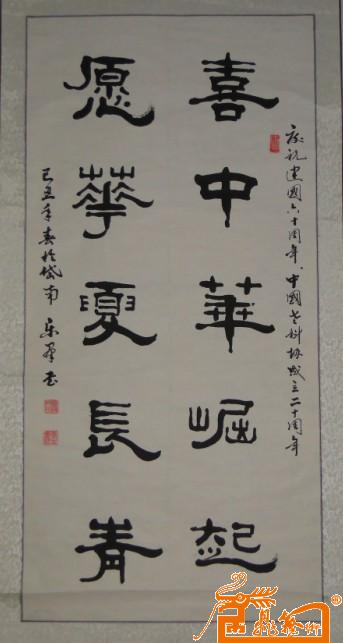 庆祝建國六十周年、中國老科协成立二十周年
喜中華崛起
愿華夏長青
己丑年春於岱南